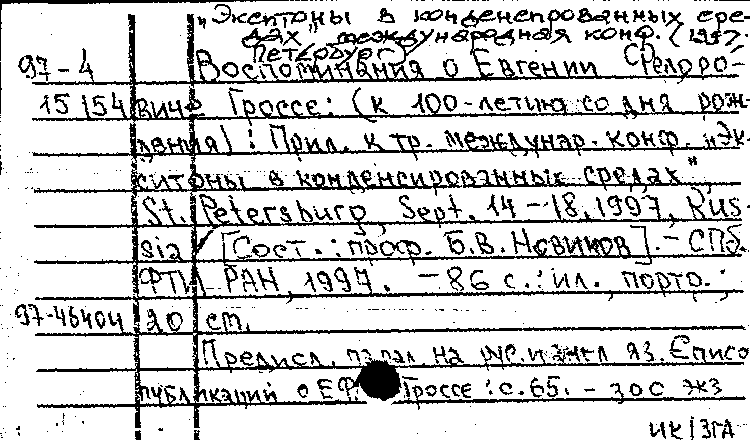 „Экситоны в конденсированных сре-
дах" международная конф. (1997.
Петербург)
97-4 Воспоминания о Евгении Федоро-
15154 виче Гроссе: (к 100-летию со дня рож-
дения): Прил. к тр. междунар. конф. „Эк-
ситоны в конденсированных средах",
St. Petersburg, Sept. 14-18, 1997, Rus-
sia / [Сост.: проф. Б.В. Новиков]. - СПб.
ФТИ РАН, 1997. - 86 с.: ил., портр.;
97-46404 20 см.
Предисл. парал. на рус. и англ яз. Списо
публикаций о Е.Ф. Гроссе: с. 65. - 300 экз